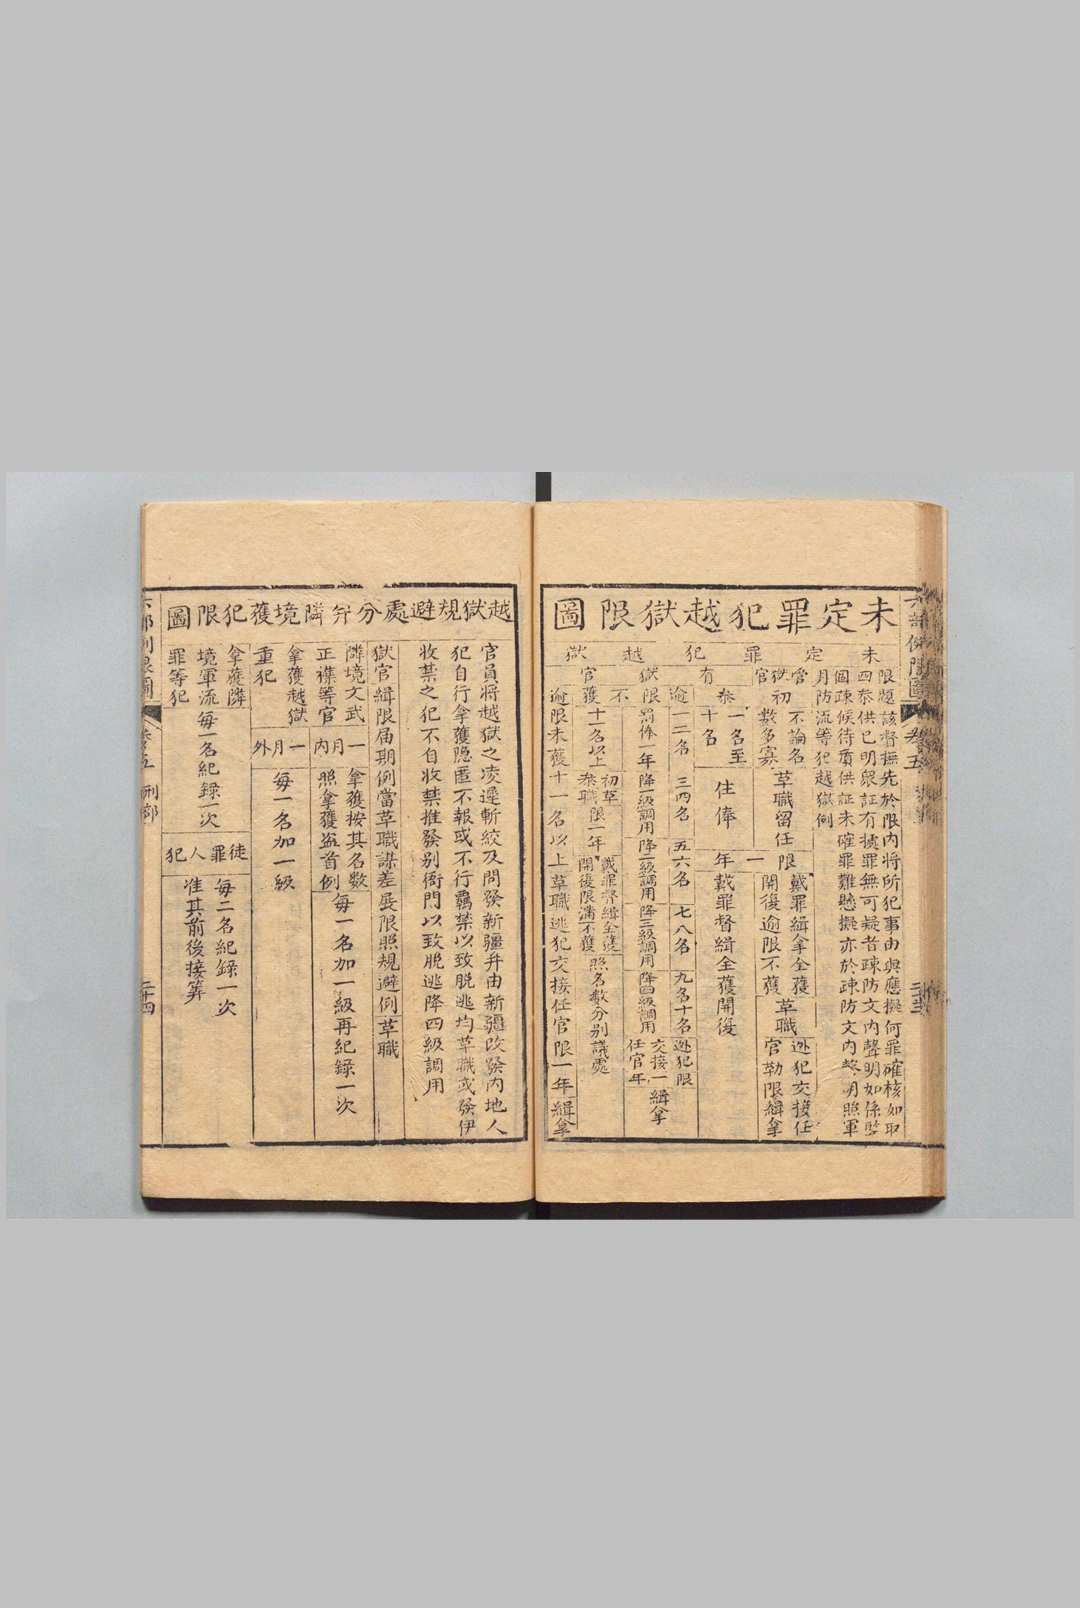 未定罪犯越獄限圖
未定罪犯越獄
限題該督撫先於限內將所犯事由與應擬何罪確核如取
四叅供已明眾証有據罪無可疑者疎防文內聲明如係監
個疎候待質供証未確罪難懸擬亦於疎防文內聲明照軍
月防流等犯越獄例
管獄官
有獄官
初叅
不論名數多寡
革職留任
限一年
戴罪緝拿全獲開復逾限不獲
革職
逃犯交接任官勒限緝拿
一名至十名
住俸
戴罪督緝全獲開復
逾限不獲
一二名
罰俸一年
三四名
降一級調用
五六名
降二級調用
七八名
降三級調用
九名十名
降四級調用
逃犯交接任官限一年緝拿
十一名以上
初叅
革職
限一年
戴罪督緝全獲開復限滿不獲
照名數分別議處
逾限未獲十一名以上革職逃犯交接任官限一年緝拿
六部例限圖
卷五
越獄規避處分并隣境獲犯限圖
官員將越獄之凌遲斬絞及問發新疆并由新疆改發內地人
犯自行拿獲隱匿不報或不行覊禁以致脫逃均革職或發伊
收禁之犯不自收禁推發別衙門以致脫逃降四級調用
獄官緝限屆期例當革職謀差展限照規避例革職
隣境文武正襍等官拿獲越獄重犯
一月內
拿獲按其名數照拿獲盜首例每一名加一級再紀錄一次
一月外
每一名加一級
拿獲隣境軍流罪等犯
每一名紀錄一次
徒罪人犯
每二名紀錄一次
准其前後接筭
六部例限圖
卷五
刑部
二十四